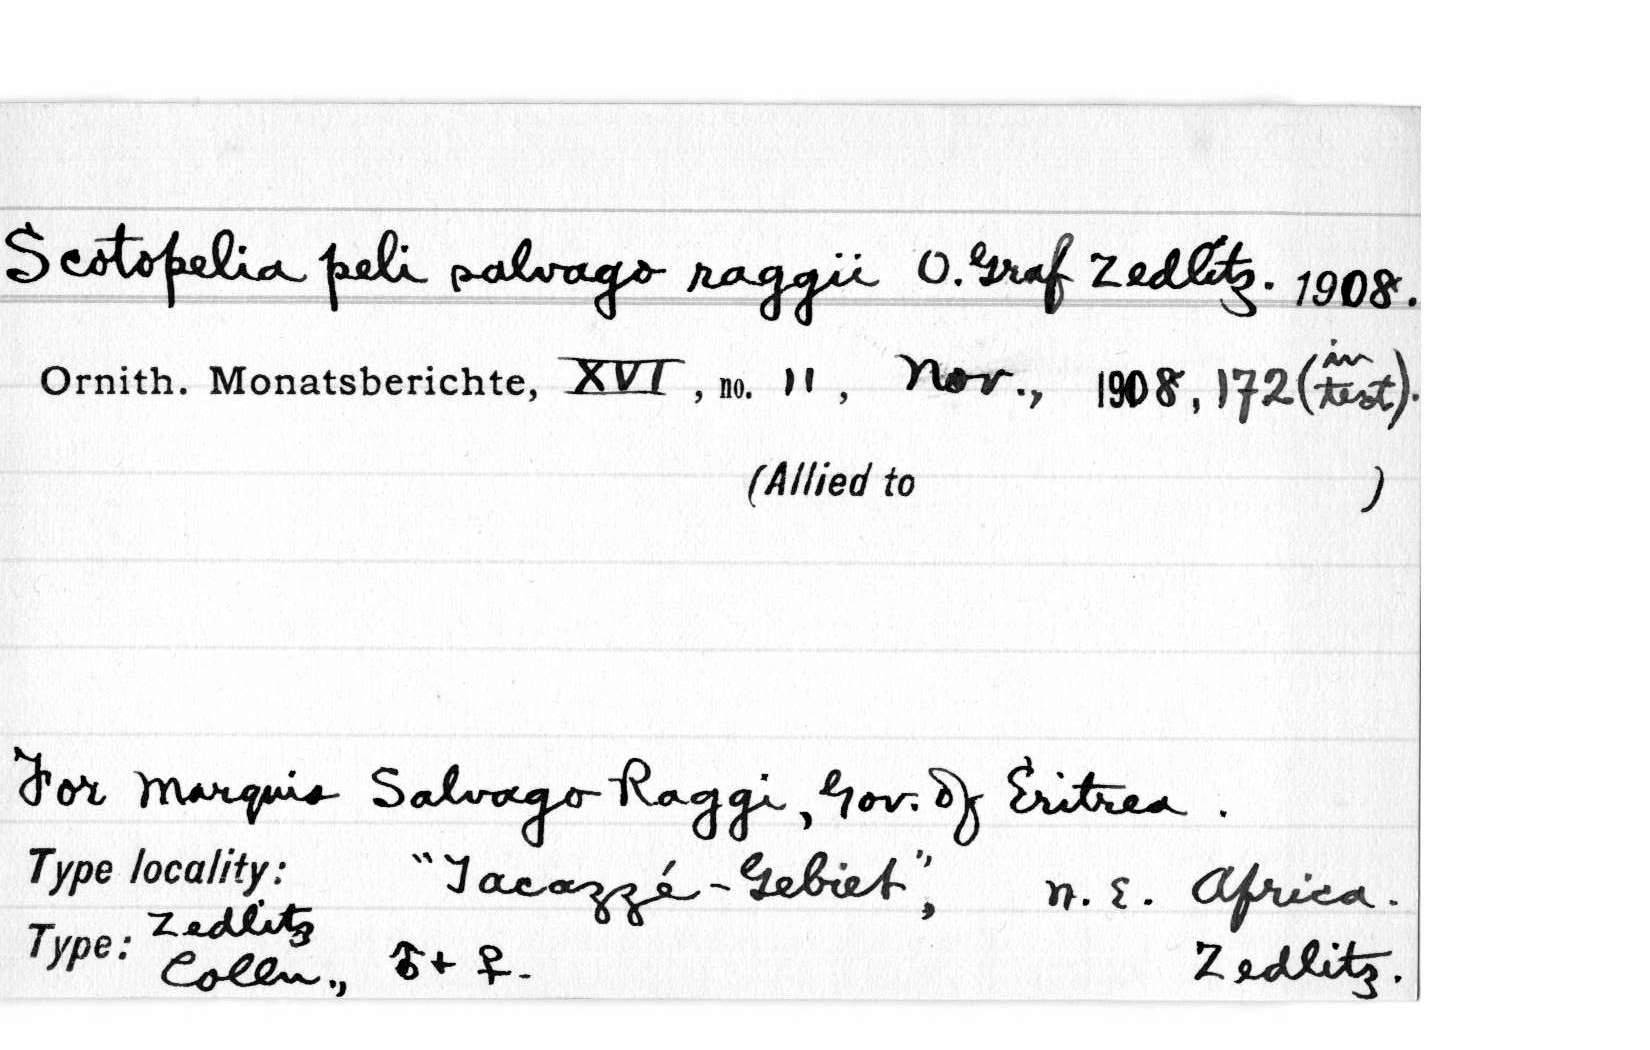 Scotopelia peli salvago raggii O. Graf Zedlitz. 1908.
Ornith. Monatsberichte, XVI, no. 11, Nov., 1908, 172 (in text).
(Allied to )
For Marquis Salvago Raggi, Gov. of Eritrea.
Type locality: "Tacazzé-Gebiet", N. E. Africa.
Type: Zedlitz Colln., ♂ + ♀. Zedlitz.